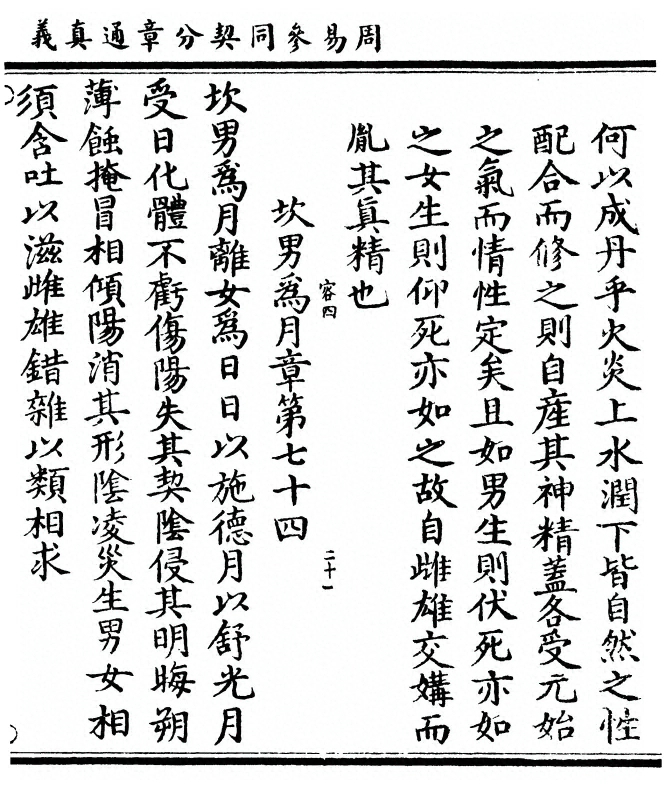 周易參同契分章通真義
何以成丹乎火炎上水潤下皆自然之性
配合而修之則自產其神精蓋各受元始
之氣而情性定矣且如男生則伏死亦如
之女生則仰死亦如之故自雌雄交媾而
胤其真精也
容四
二十一
坎男為月章第七十四
坎男為月離女為日日以施德月以舒光月
受日化體不虧傷陽失其契陰侵其明晦朔
薄蝕掩冒相傾陽消其形陰凌災生男女相
須含吐以滋雌雄錯雜以類相求